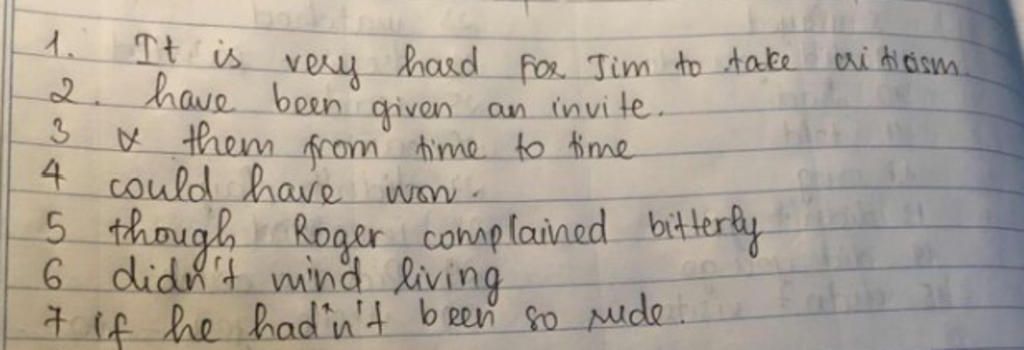 1. It is very hard for Jim to take critisism.
2. have been given an invite.
3 & them from time to time
4 could have won.
5 though Roger complained bitterly
6 didn't mind living
7 if he hadn't been so rude.